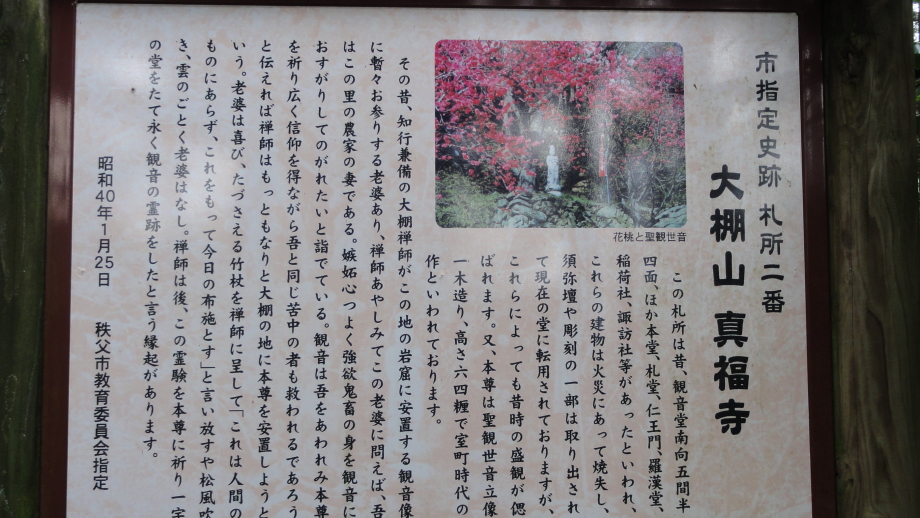 市指定史跡 札所二番
大棚山 真福寺
花桃と聖観世音
この札所は昔、観音堂南向五間半
四面、ほか本堂、札堂、仁王門、羅漢堂、
稲荷社、諏訪社等があったといわれ、
これらの建物は火災にあって焼失し、
須弥壇や彫刻の一部は取り出され
て現在の堂に転用されておりますが、
これらによっても昔時の盛観が偲
ばれます。又、本尊は聖観世音立像
一木造り、高さ六四糎で室町時代の
作といわれております。
その昔、知行兼備の大棚禅師がこの地の岩窟に安置する観音像
に暫々お参りする老婆あり、禅師あやしみてこの老婆に問えば、吾
はこの里の農家の妻である。嫉妬心つよく強欲鬼畜の身を観音に
おすがりしてのがれたいと詣でている。観音は吾をあわれみ本尊
を祈り広く信仰を得ながら吾と同じ苦中の者も救われるであろう
と伝えれば禅師はもっともなりと大棚の地に本尊を安置しようと
いう。老婆は喜び、たづさえる竹杖を禅師に呈して「これは人間の
ものにあらず、これをもって今日の布施とす」と言い放すや松風吹
き、雲のごとく老婆はなし。禅師は後、この霊験を本尊に祈り一宇
の堂をたて永く観音の霊跡をしたと言う縁起があります。
昭和40年1月25日 秩父市教育委員会指定